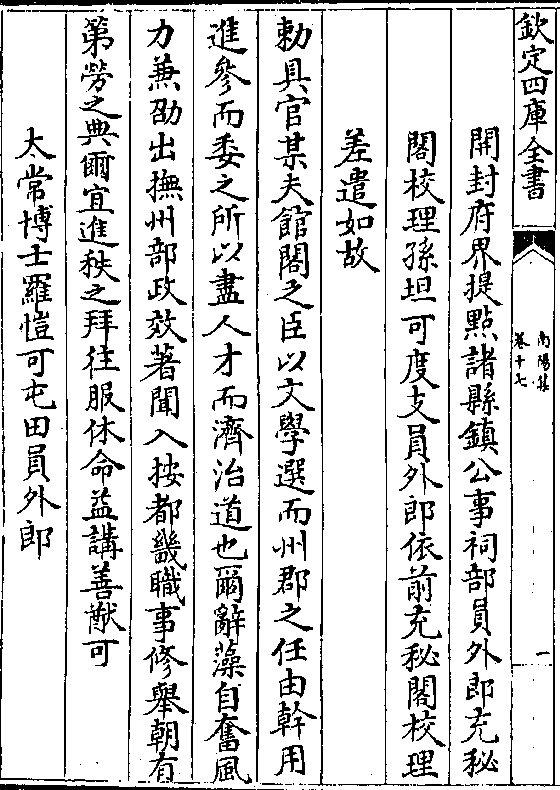 欽定四庫全書
南陽集
卷十七
一
開封府界提點諸縣鎮公事祠部員外郎充秘
閣校理孫坦可度支員外郎依前充秘閣校理
差遣如故
勅具官某夫館閣之臣以文學選而州郡之任由幹用
進參而委之所以盡人才而濟治道也爾辭藻自奮風
力兼劭出撫州部政效著聞入按都畿職事修舉朝有
第勞之典爾宜進秩之拜往服休命益講善猷可
太常博士羅愷可屯田員外郎